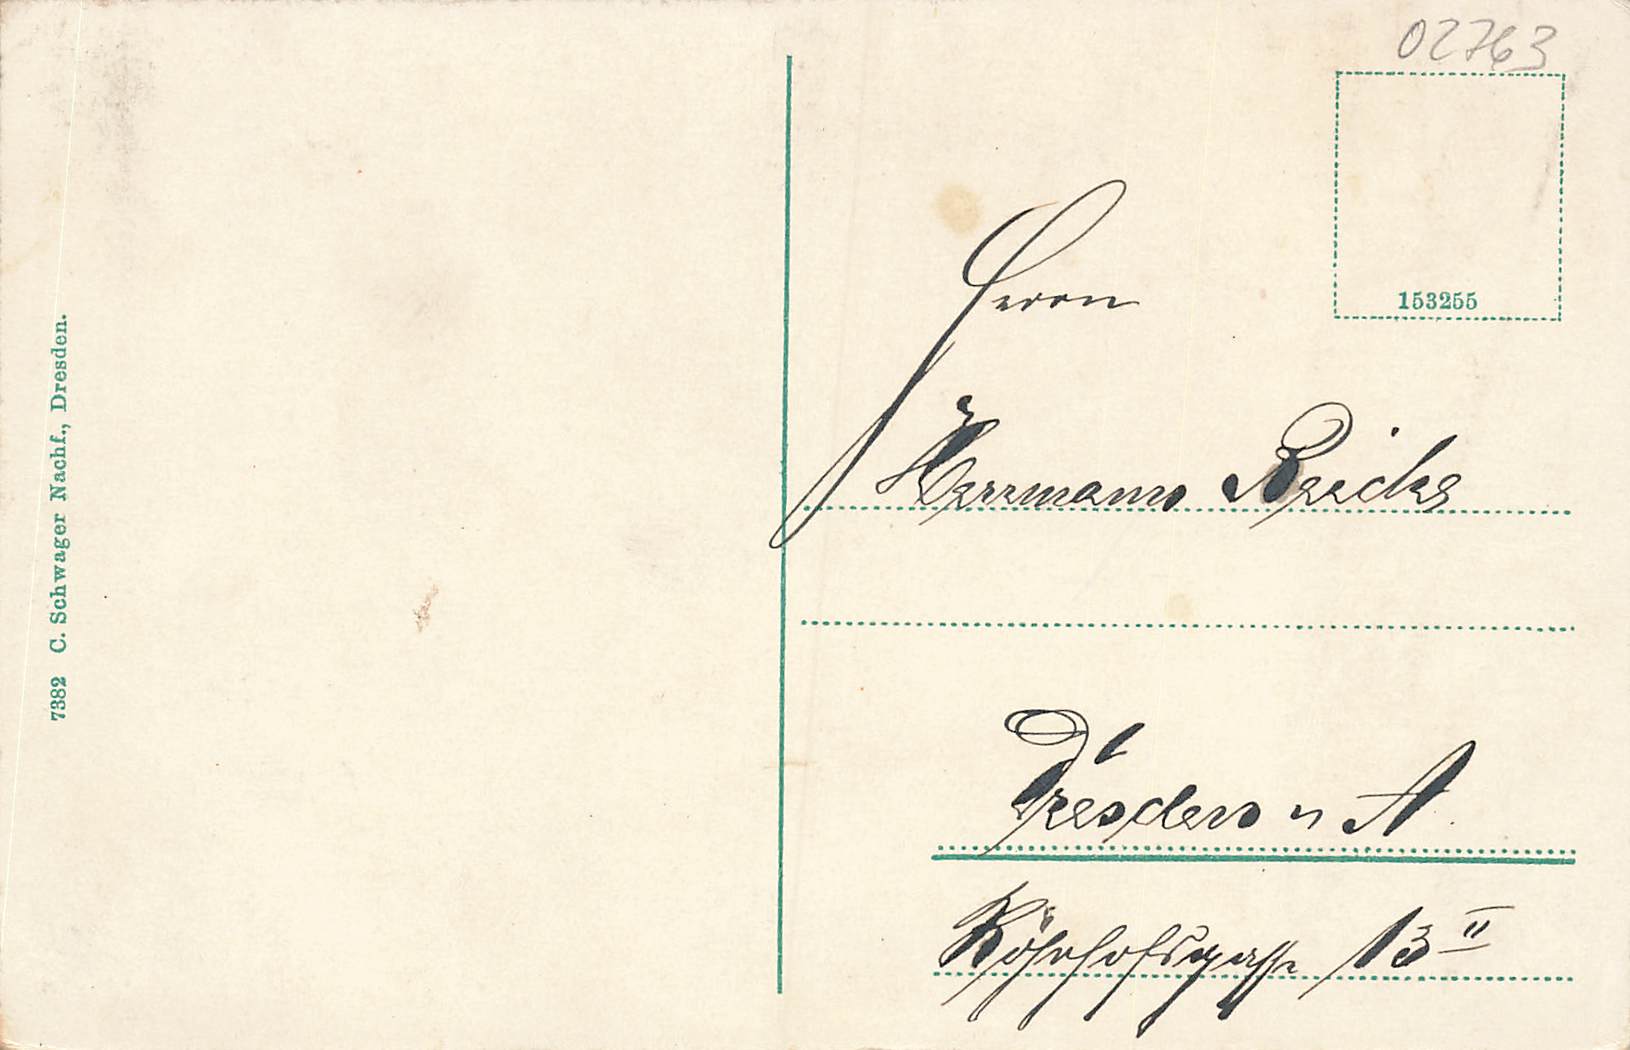 02763
153255
Herrn
Herrmann Reicke
Dresden n A.
Röhrhofsgasse 13 II
7382 C. Schwager Nachf., Dresden.